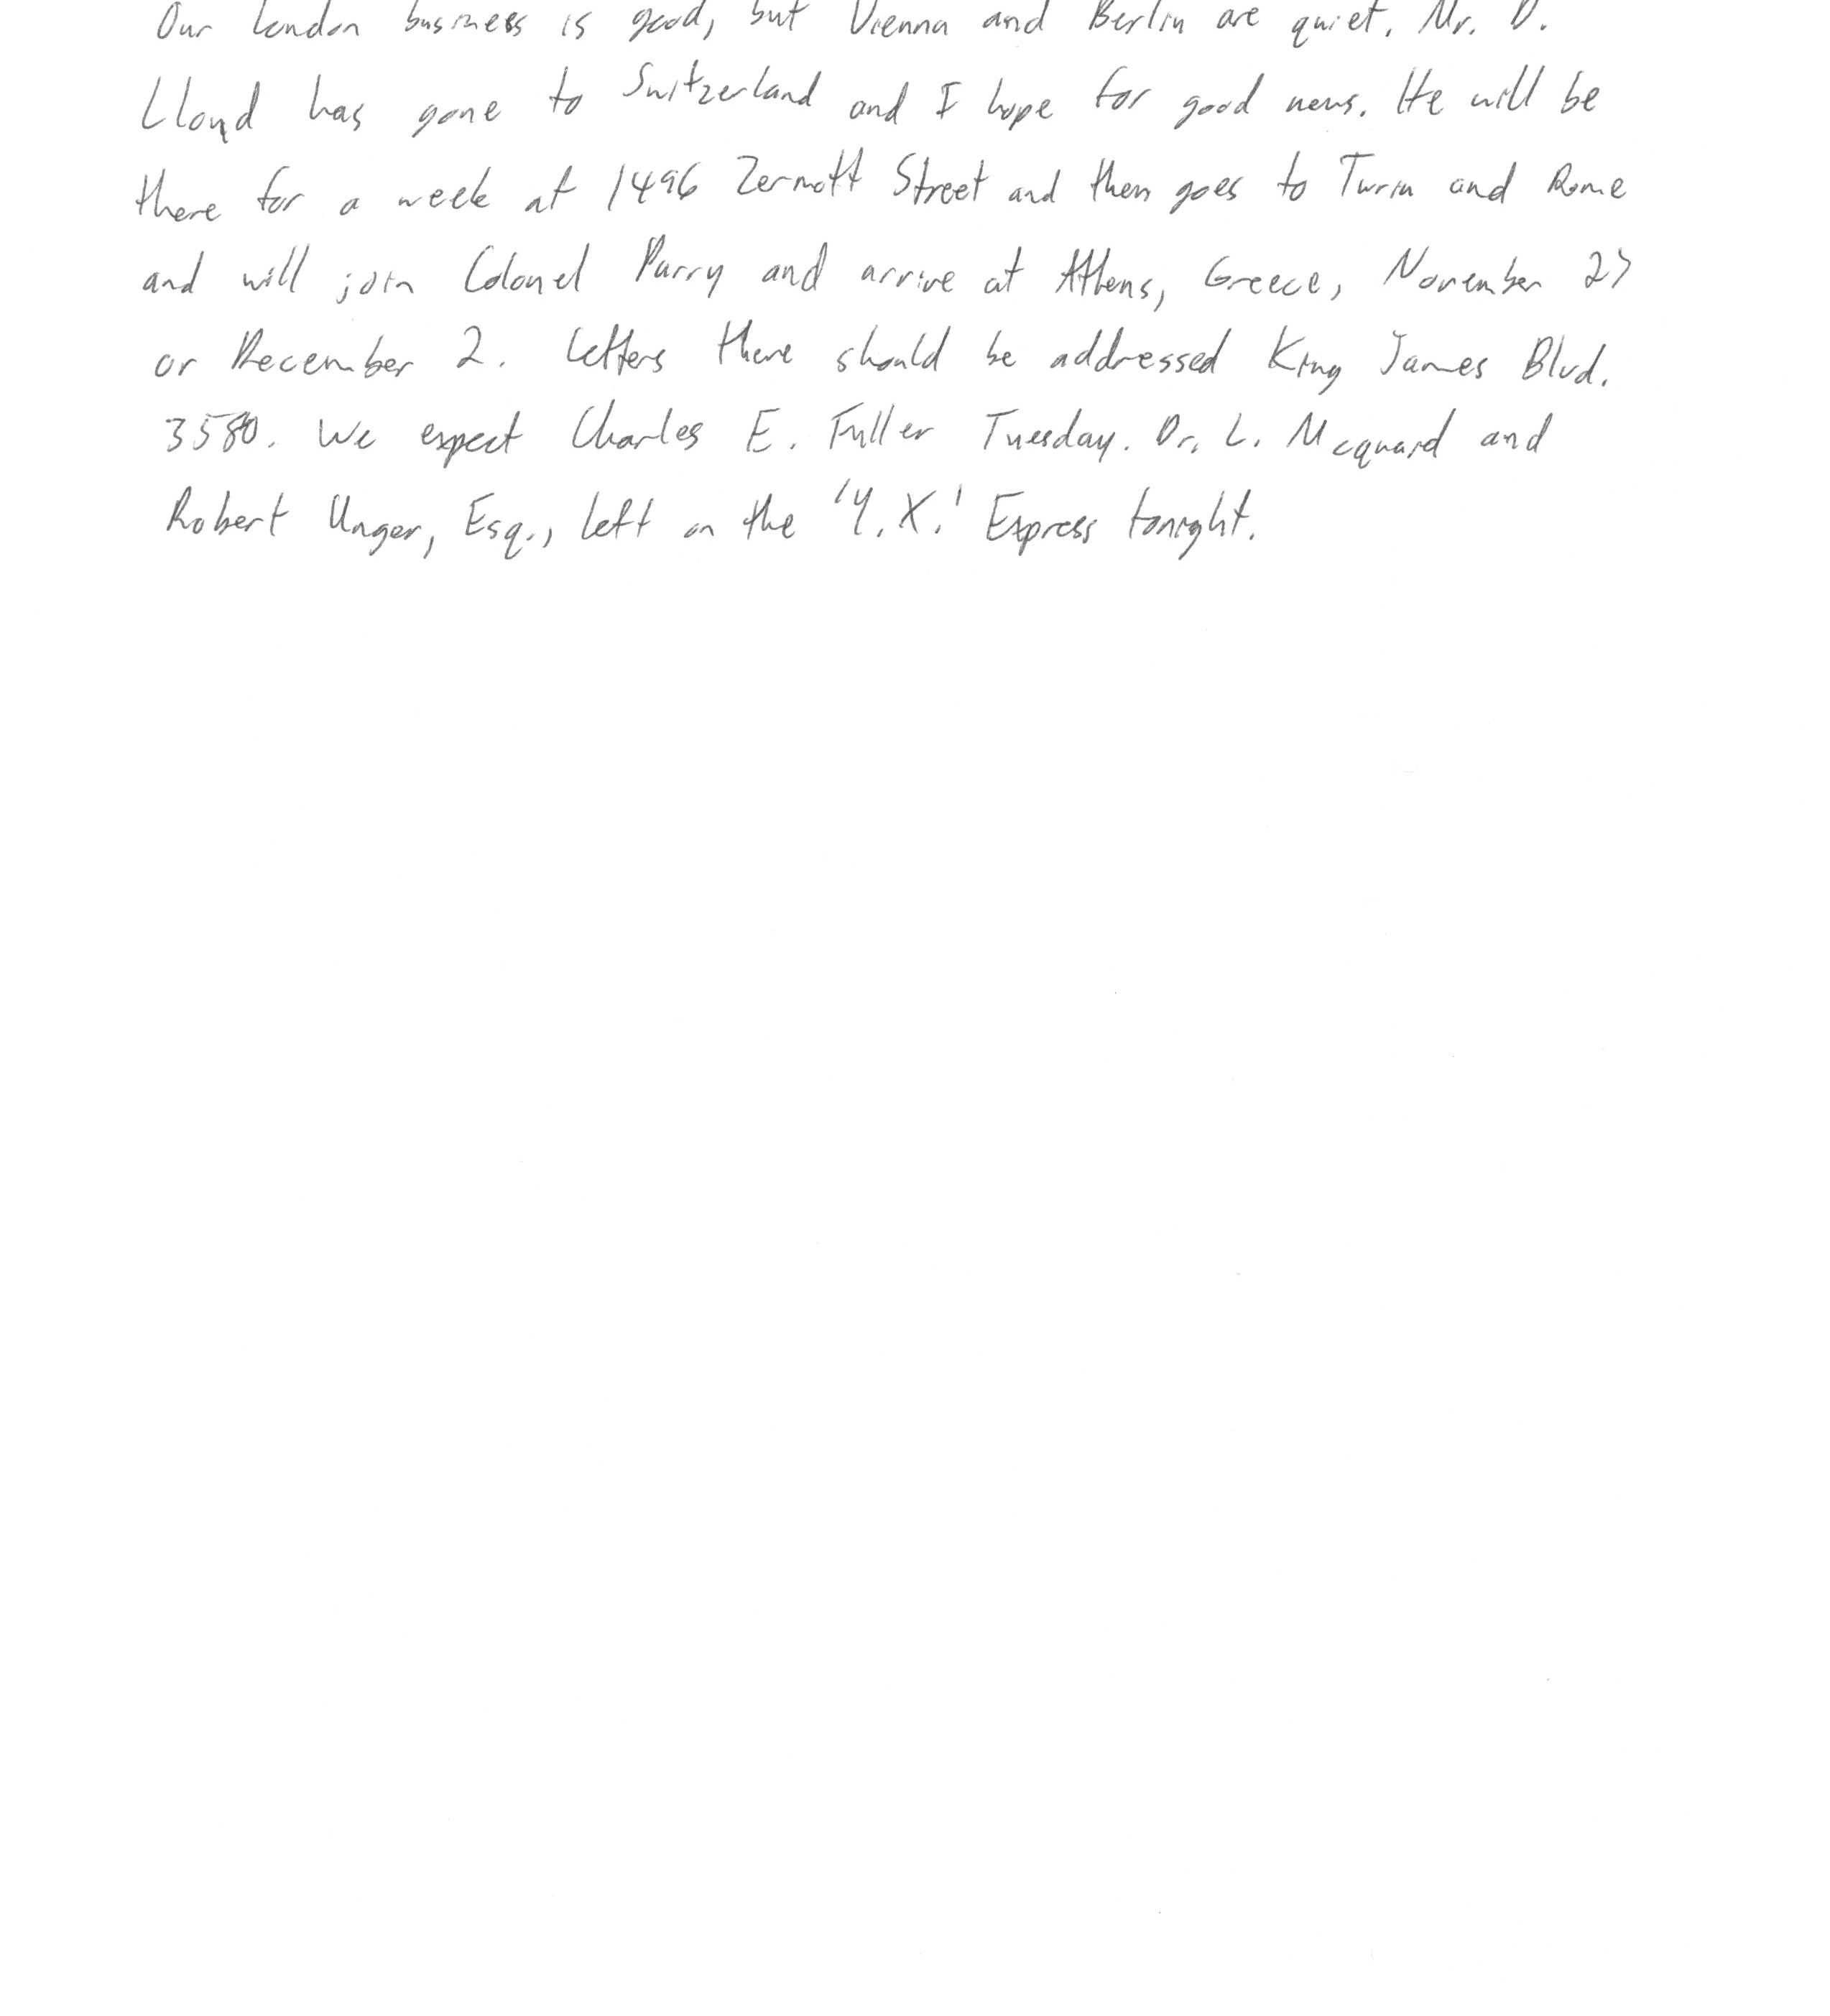 Our London business is good, but Vienna and Berlin are quiet. Mr. D.
Lloyd has gone to Switzerland and I hope for good news. He will be
there for a week at 1496 Zermott Street and then goes to Turin and Rome
and will join Colonel Parry and arrive at Athens, Greece, November 27
or December 2. Letters there should be addressed King James Blvd.
3580. We expect Charles E. Fuller Tuesday. Dr. L. Mcquaid and
Robert Unger, Esq., left on the 'Y.X.' Express tonight.